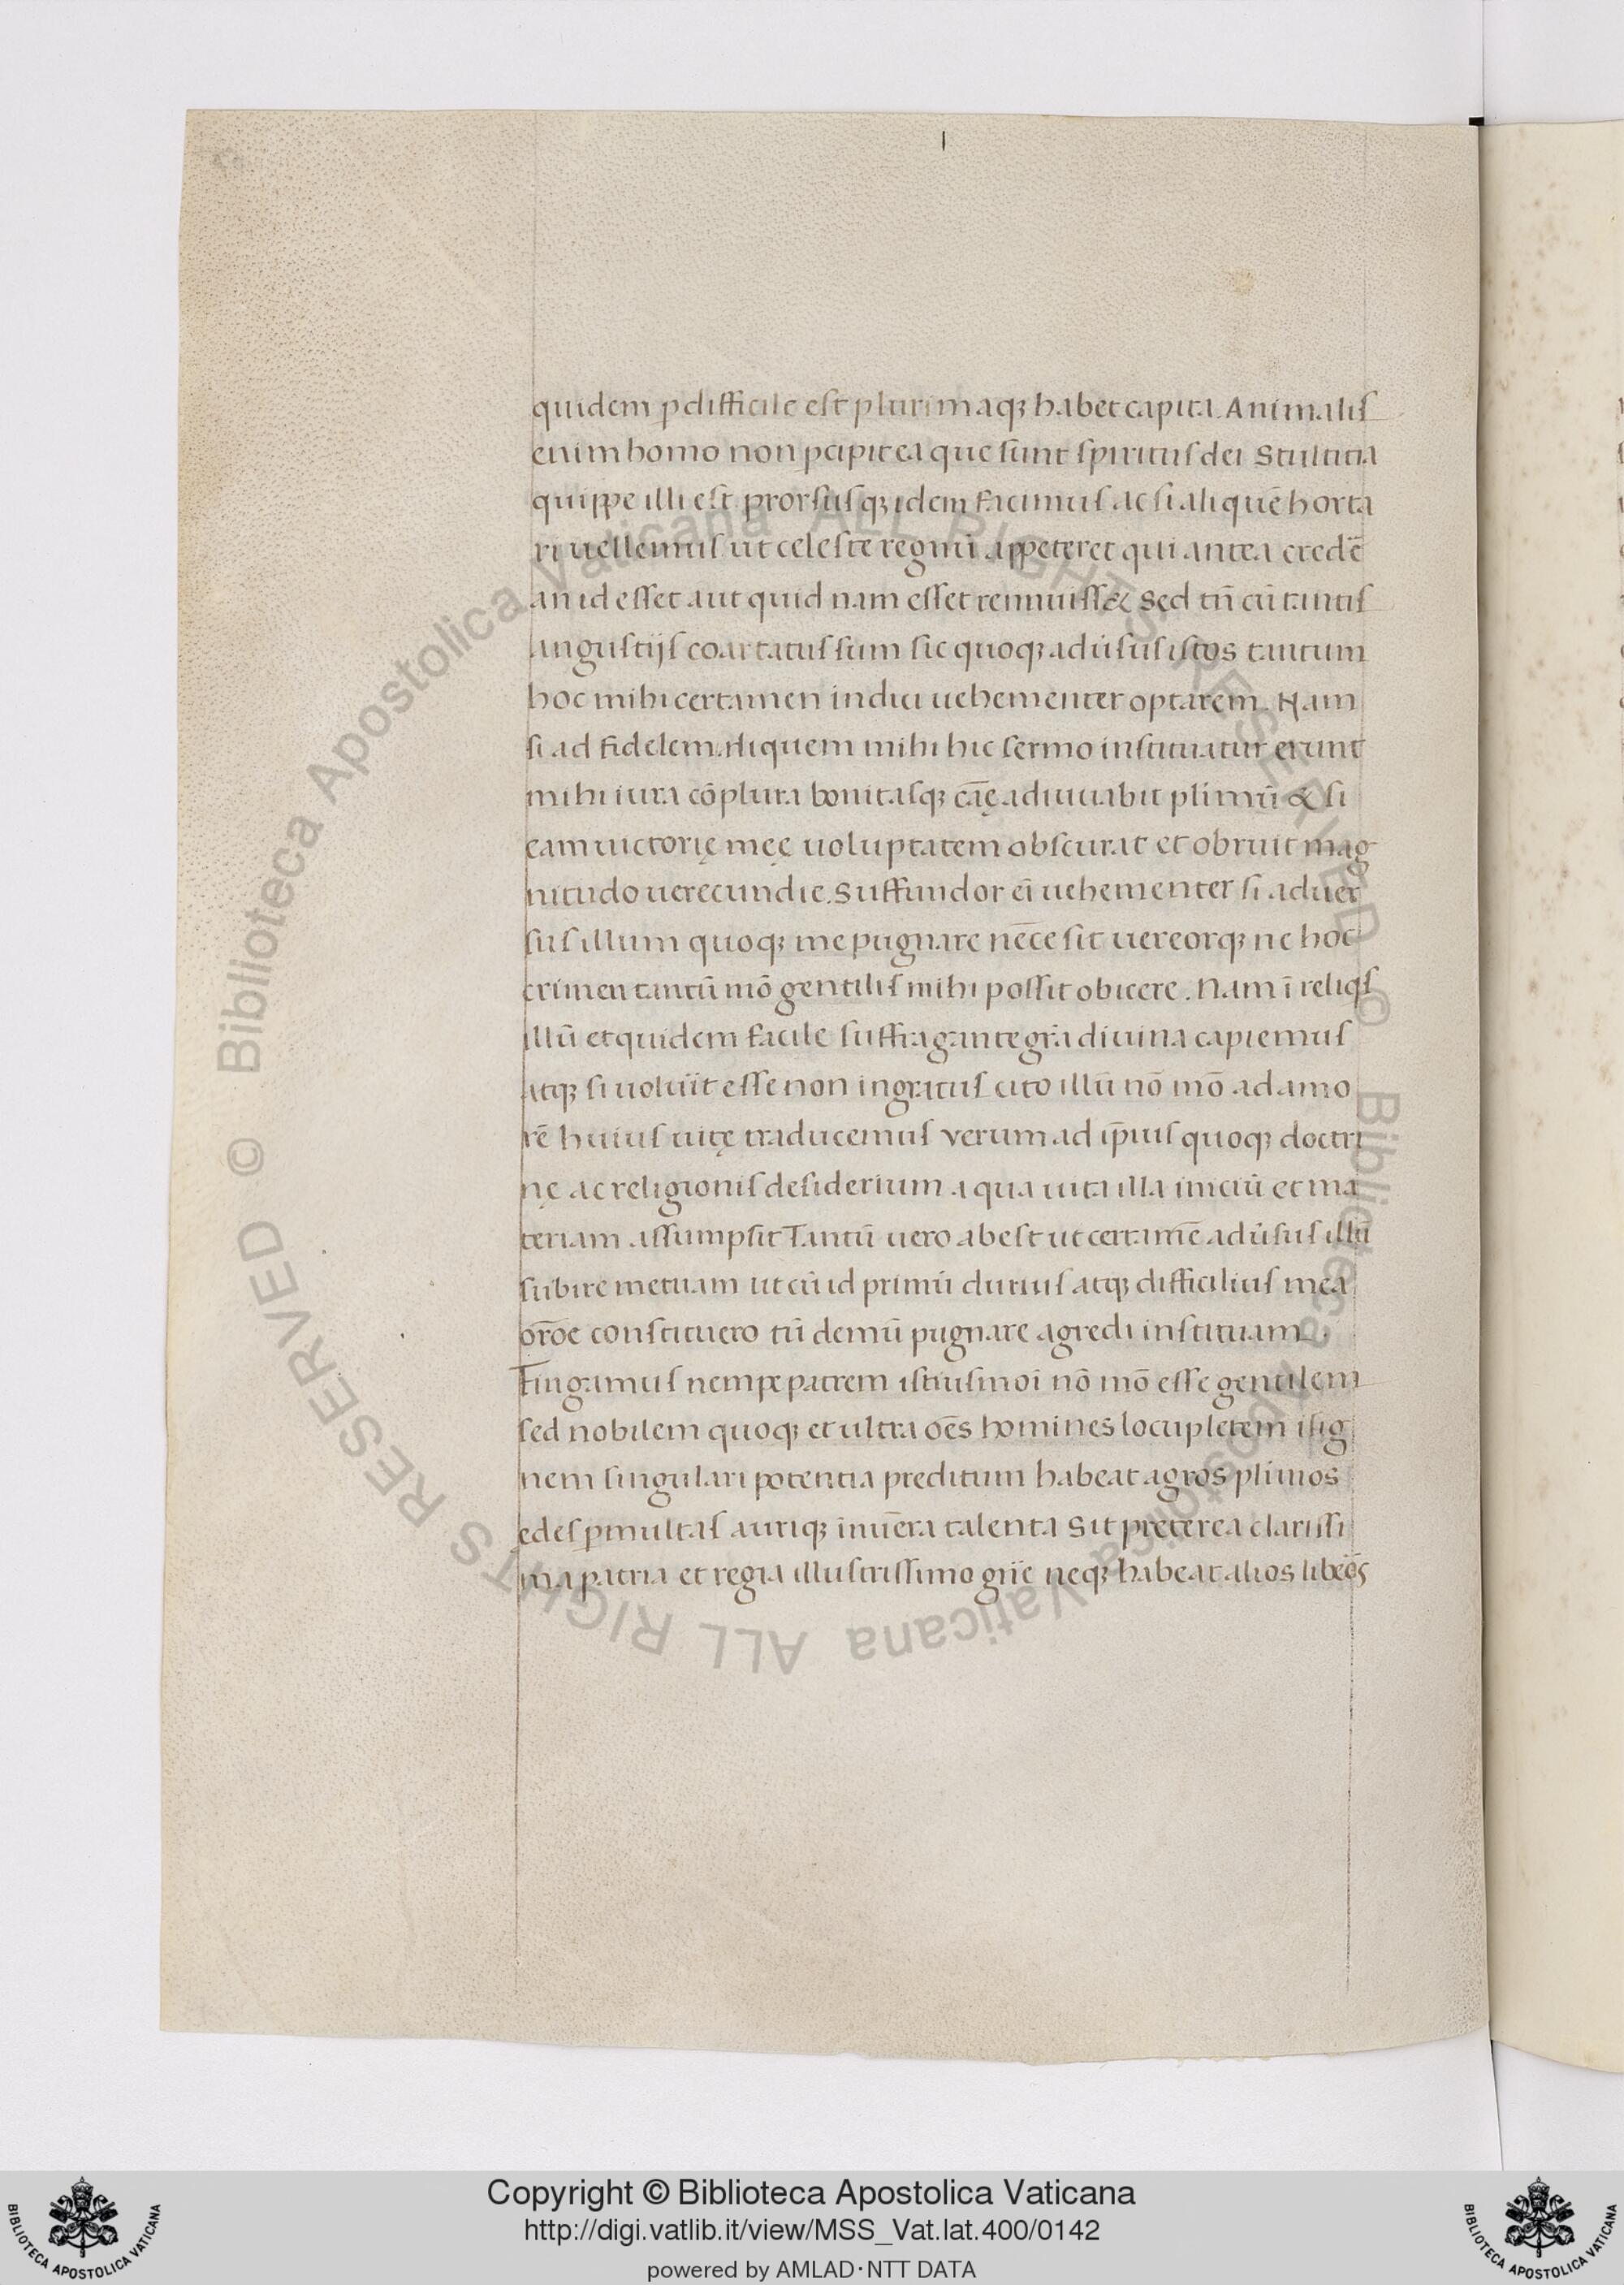 quidem ꝑdifficile est plurimaqꝫ habet capita. Animalis
enim homo non ꝑcipit ea que sunt spiritus dei Stultitia
quippe illi est prorsusqꝫ idem facimus ac si aliquē horta
ri uellemus ut celeste regnū appeteret qui antea credē
an id esset aut quid nam esset rennuiss& Sed tñ cū tantis
angustijs coartatus sum sic quoqꝫ adūsus istos tantum
hoc mihi certamen indici uehementer optarem. Nam
si ad fidelem aliquem mihi hic sermo instituatur erunt
mihi iura cōplura bonitasqꝫ cāę adiuuabit plimū & si
eam uictorię męę uoluptatem obscurat et obruit mag
nitudo uerecundie. Suffundor eī uehementer si aduer
sus illum quoqꝫ me pugnare nēce sit uereorqꝫ ne hoc
crimen tantū mō gentilis mihi possit obicere. Nam ī reliqs
illū et quidem facile suffragante grā diuina capiemus
atqꝫ si uolūit esse non ingratus cito illū nō mō ad amo
rē huius uitę traducemus verum ad ip̄ius quoqꝫ doctri
nę ac religionis desiderium a qua uita illa iniciū et ma
teriam assumpsit Tantū uero abest ut certamē adūsus illū
subire metuam ut cū id primū durius atqꝫ difficilius mea
orōe constituero tū demū pugnare agredi instituam.
Fingamus nempe patrem istiusmoī nō mō esse gentilem
sed nobilem quoqꝫ et ultra oēs homines locupletem isig
nem singulari potentia preditum habeat agros plimos
edes ꝑmultas auriqꝫ inūera talenta Sit preterea clarissi
ma patria et regia illustrissimo gñe neqꝫ habeat alios libēos
Copyright © Biblioteca Apostolica Vaticana
http://digi.vatlib.it/view/MSS_Vat.lat.400/0142
powered by AMLAD·NTT DATA
BIBLIOTECA APOSTOLICA VATICANA
BIBLIOTECA APOSTOLICA VATICANA
© Biblioteca Apostolica Vaticana ALL RIGHTS RESERVED © Biblioteca Apostolica Vaticana ALL RIGHTS RESERVED